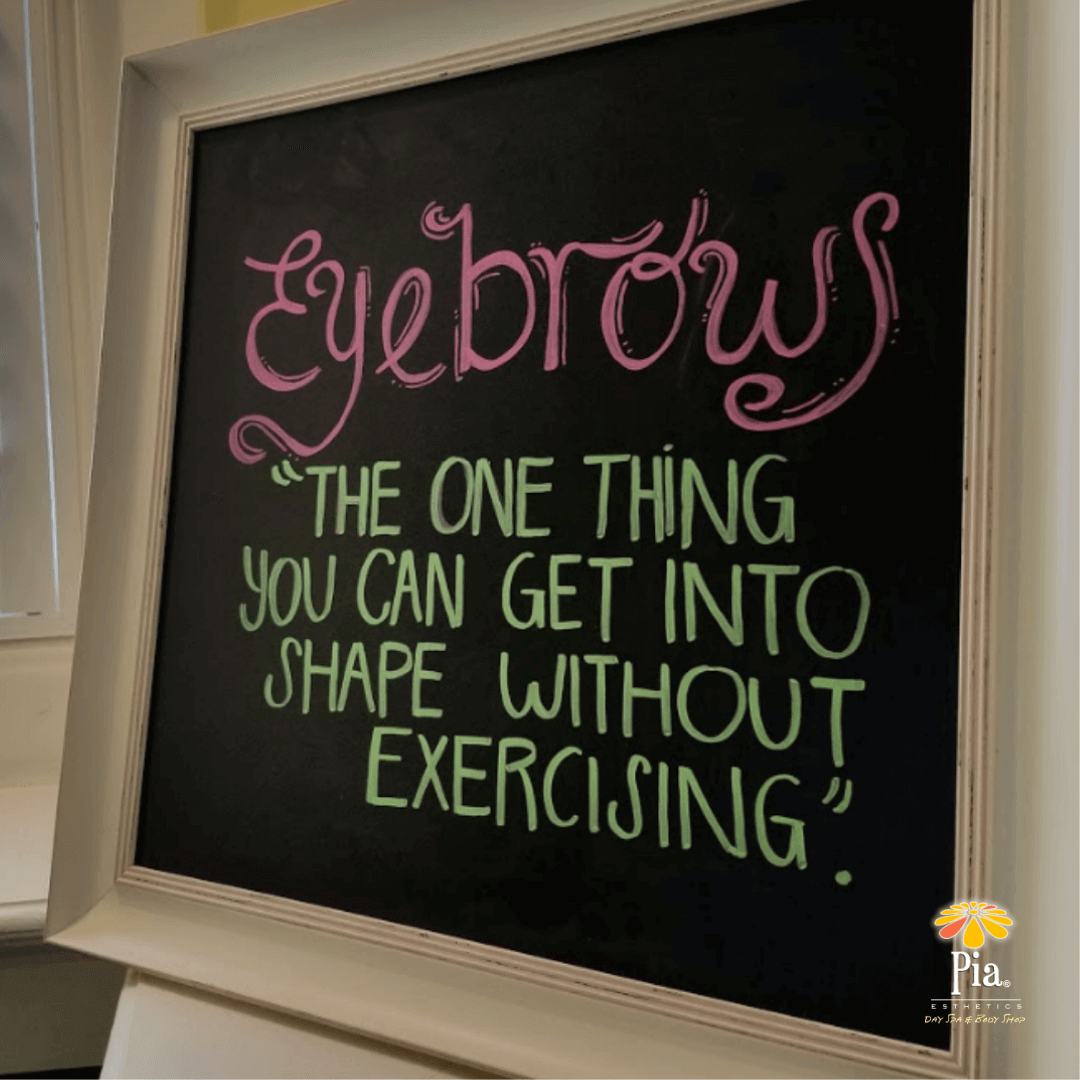 Eyebrows
"THE ONE THING
YOU CAN GET INTO
SHAPE WITHOUT
EXERCISING".
Pia©
ESTHETICS
DAY SPA & BODY SHOP